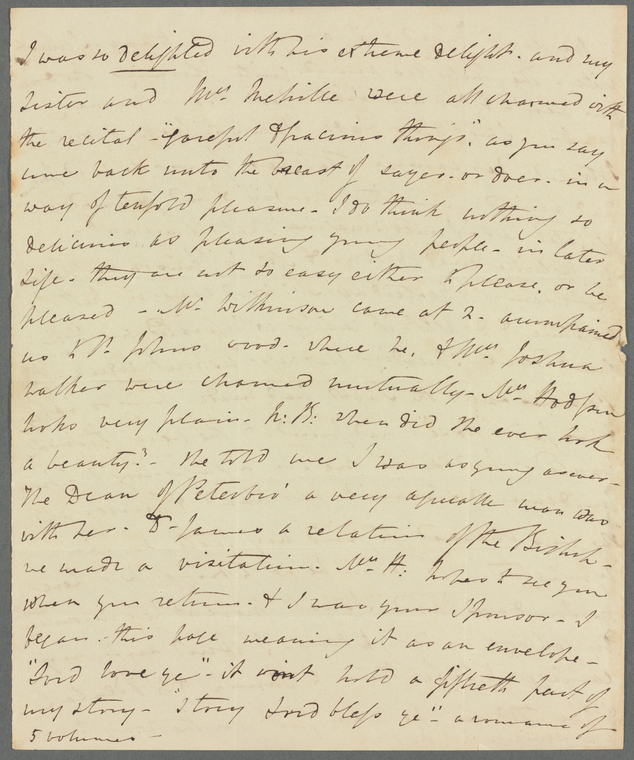 I was so delighted with his extreme delight. and my
sister and Mrs Melville were all charmed with
the recital - "gareful & spacious things". as you say
come back unto the breast of sayer. or doer. in a
way of tenfold pleasure - I do think nothing so
delicious as pleasing young people - in later
life. they are not so easy either to please. or be
pleased - Mr Wilkinson came at 2 - accompanied
us to St. Johns wood - where he, & Mrs Joshua
walker were charmed mutually - Mrs Hodgson
looks very plain - N:B: when did she ever look
a beauty? - she told me I was as young as ever -
The Dean of Peterbro' a very agreeable man was
with her - Dr James a relation of the Bishop -
we made a visitation. Mrs H: hopes to see you
when you return. & I was your Sponsor - I
began this page meaning it as an envelope -
"Lord love ye" - it wont hold a fiftieth part of
my story - "Story Lord bless ye" - a romance of
5 volumes -